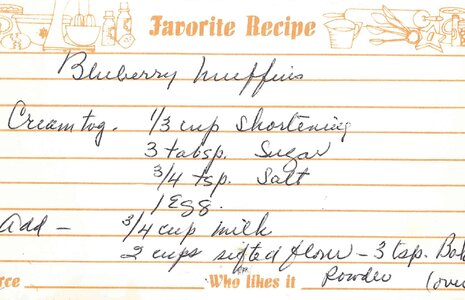 Favorite Recipe
Blueberry Muffins
Cream tog. 1/3 cup shortening
3 tabsp. Sugar
3/4 tsp. Salt
1 Egg.
Add - 3/4 cup milk
2 cups sifted flour - 3 tsp. Bak
Powder (over
rce Who likes it